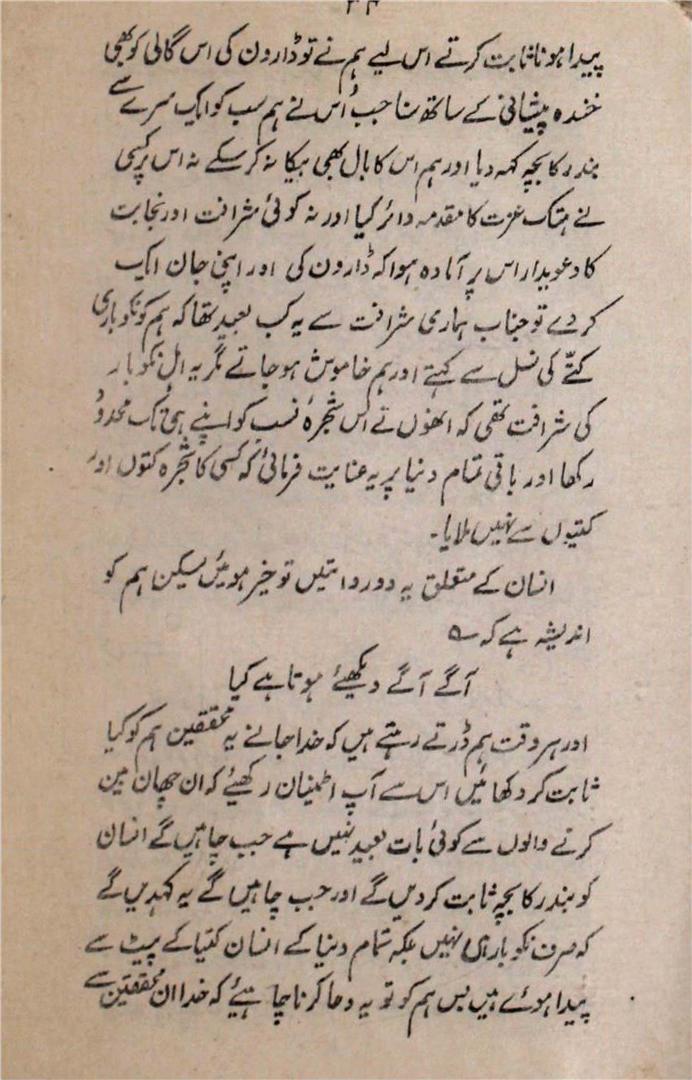 ۳۴
پیدا ہونا ثابت کرتے اس لیے ہم نے تو ڈارون کی اس گالی کو بھی
خندہ پیشانی کے ساتھ سنا جب اُس نے ہم سب کو ایک سرے سے
بندر کا بچہ کہہ دیا اور ہم اس کا بال بھی بیکا نہ کر سکے نہ اس پر کسی
نے ہتک عزت کا مقدمہ دائر کیا اور نہ کوئی شرافت اور نجابت
کا دعویدار اس پر آمادہ ہوا کہ ڈارون کی اور اپنی جان ایک
کر دے تو جناب ہماری شرافت سے یہ کب بعید تھا کہ ہم کو نکوباری
کتّے کی نسل سے کہتے اور ہم خاموش ہو جاتے مگر یہ اہلِ نکوبار
کی شرافت تھی کہ انھوں نے اس شجرۂ نسب کو اپنے ہی تک محدود
رکھا اور باقی تمام دنیا پر یہ عنایت فرمائی کہ کسی کا شجرہ کتوں اور
کتیوں سے نہیں ملایا۔
انسان کے متعلق یہ دو روائتیں تو خیر ہوئیں لیکن ہم کو
اندیشہ ہے کہ ؎
آگے آگے دیکھیئے ہوتا ہے کیا
اور ہر وقت ہم ڈرتے رہتے ہیں کہ خدا جانے یہ محققین ہم کو کیا
ثابت کر دکھائیں اس سے آپ اطمینان رکھیئے کہ ان چھان بین
کرنے والوں سے کوئی بات بعید نہیں ہے جب چاہیں گے انسان
کو بندر کا بچہ ثابت کر دیں گے اور جب چاہیں گے یہ کہدیں گے
کہ صرف نکوباری نہیں بلکہ تمام دنیا کے انسان کتیا کے پیٹ سے
پیدا ہوئے ہیں بس ہم کو تو یہ دعا کرنا چاہیئے کہ خدا ان محققین سے